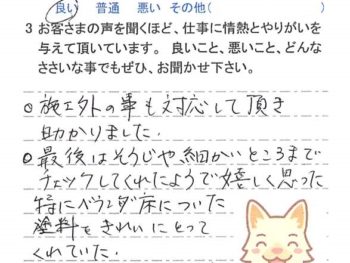 良い 普通 悪い その他( )
3 お客さまの声を聞くほど、仕事に情熱とやりがいを
与えて頂いています。 良いこと、悪いこと、どんな
ささいな事でもぜひ、お聞かせ下さい。
○ 施工外の事も対応して頂き
助かりました.
○ 最後はそうじや、細かいところまで
チェックしてくれたようで嬉しく思った
特にベランダ床についた
塗料をきれいにとって
くれていた.